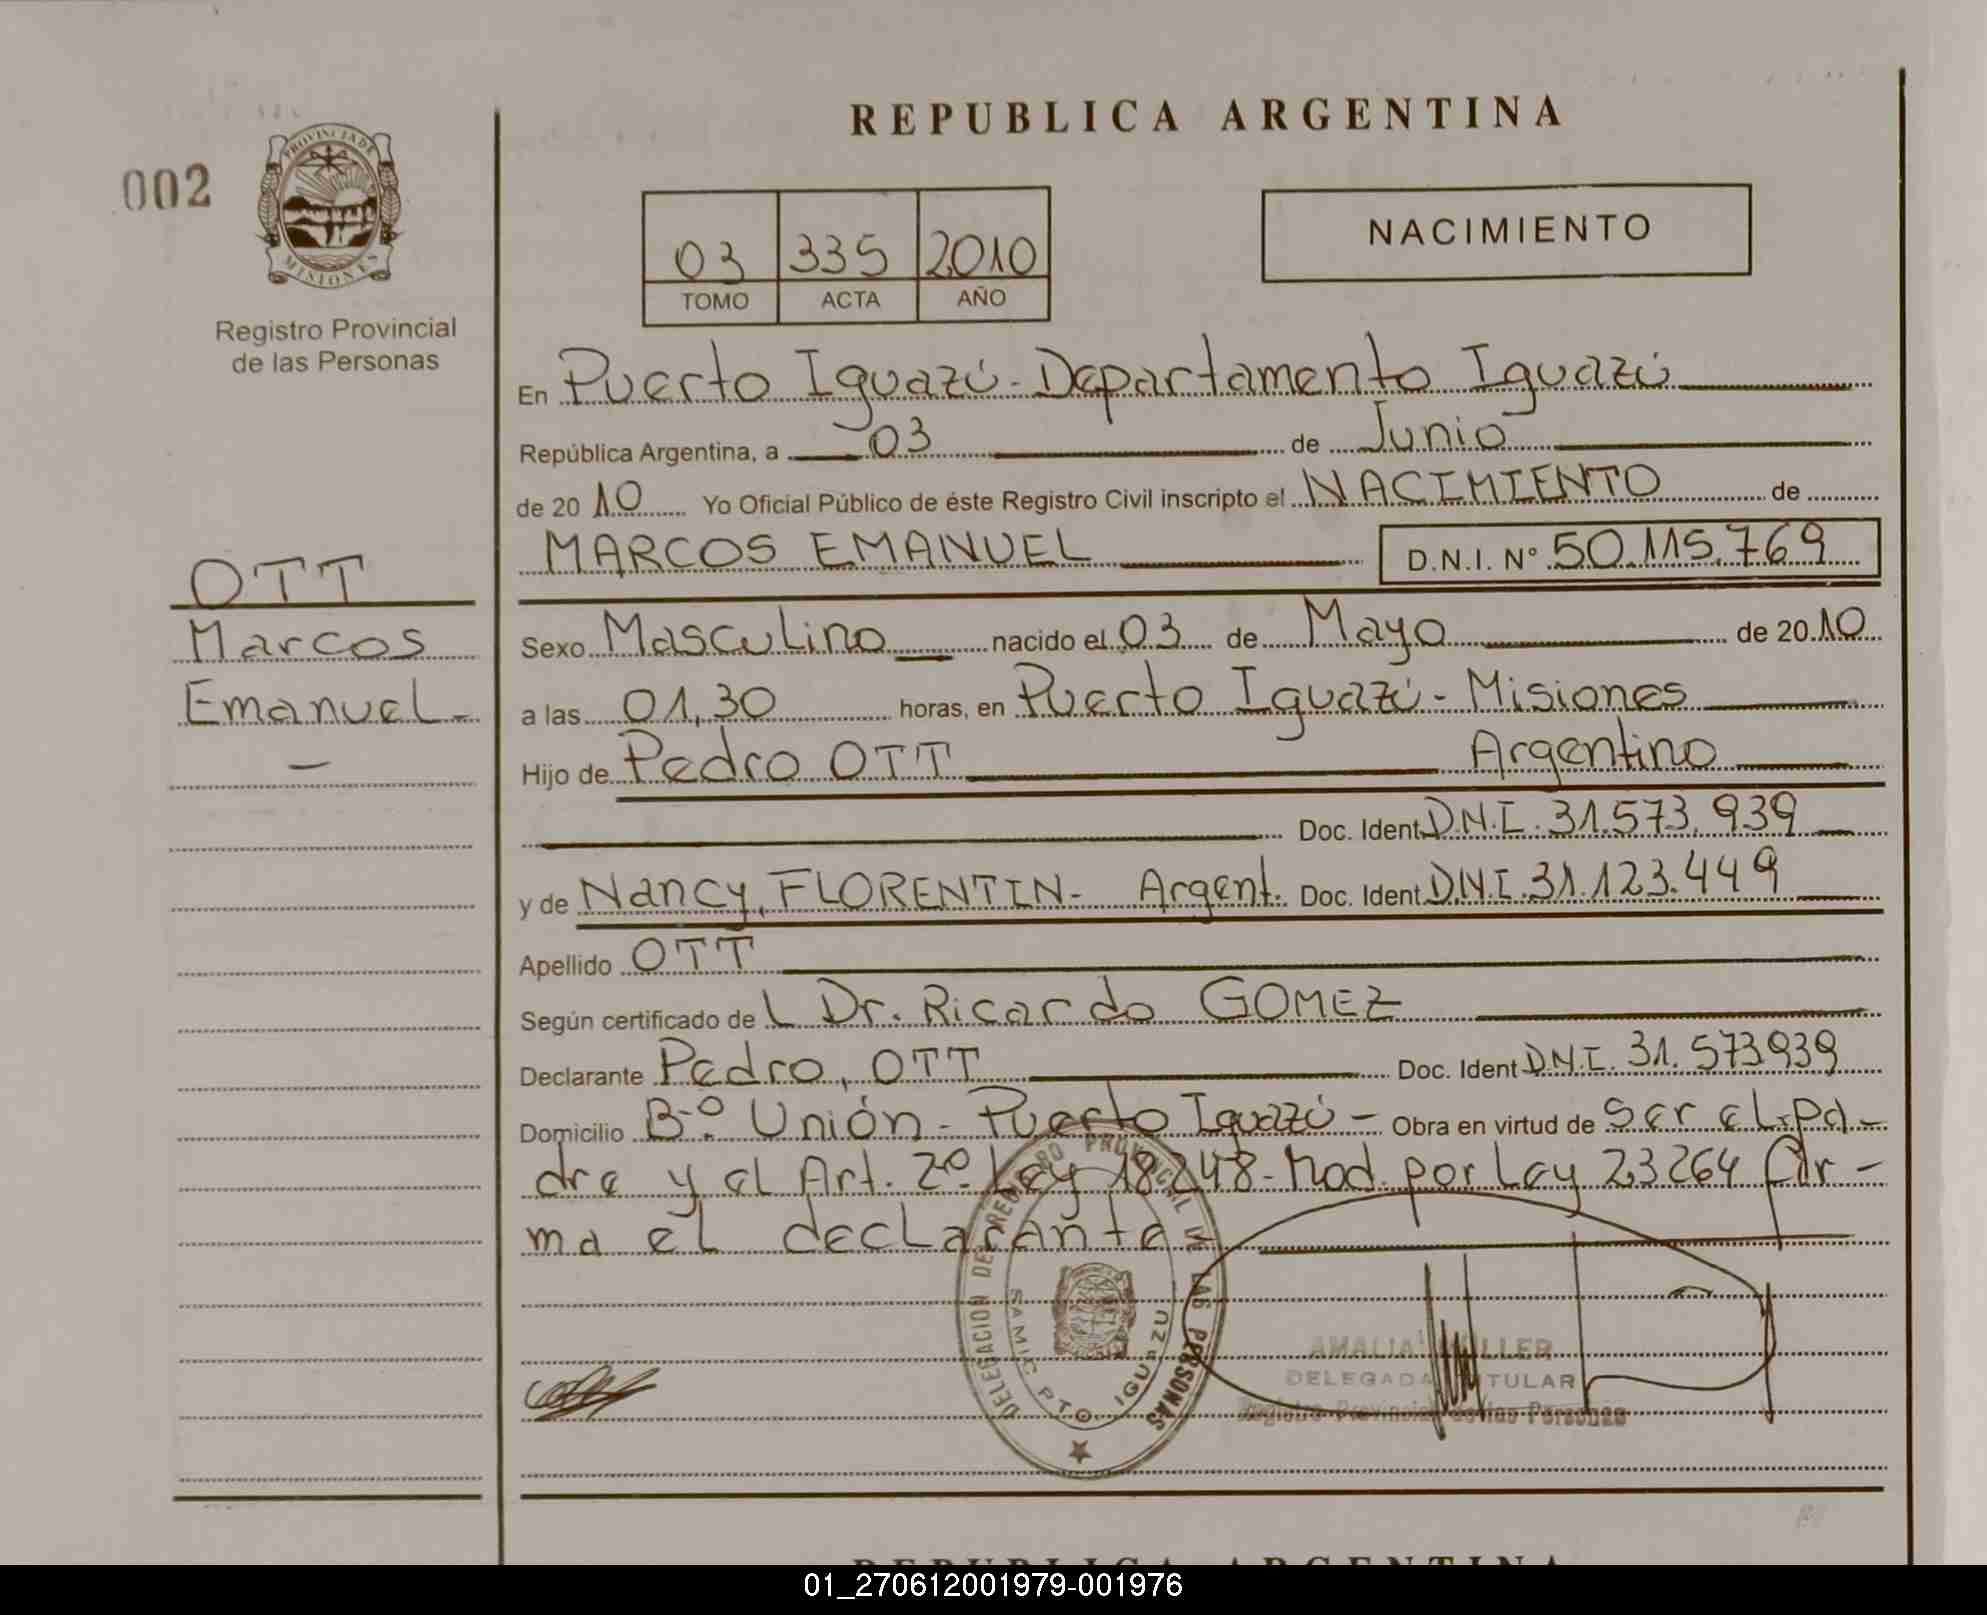 REPUBLICA ARGENTINA
002
PROVINCIA DE
MISIONES
Registro Provincial
de las Personas
NACIMIENTO
03 335 2010
TOMO ACTA AÑO
En Puerto Iguazú - Departamento Iguazú
República Argentina, a 03 de Junio
de 2010 Yo Oficial Público de éste Registro Civil inscripto el NACIMIENTO de
MARCOS EMANUEL D.N.I. Nº 50.115.769
OTT
Marcos
Emanuel -
-
Sexo Masculino nacido el 03 de Mayo de 2010
a las 01,30 horas, en Puerto Iguazú - Misiones
Hijo de Pedro OTT Argentino
Doc. Ident. D.N.I. 31.573.939
y de Nancy, FLORENTIN - Argent. Doc. Ident. D.N.I. 31.123.449
Apellido OTT
Según certificado de L Dr. Ricardo GOMEZ
Declarante Pedro, OTT Doc. Ident D.N.I. 31.573939
Domicilio B.º Unión - Puerto Iguazú - Obra en virtud de Ser el pa-
dre y el Art. 2º Ley 18248 - Mod. por Ley 23264 fir-
ma el declarante
DELEGACION DE REGISTRO PROVINCIAL DE LAS PERSONAS
SAMIC PTO IGUAZU
AMALIA MULLER
DELEGADA TITULAR
Registro Provincial de las Personas
REPUBLICA ARGENTINA
01_270612001979-001976